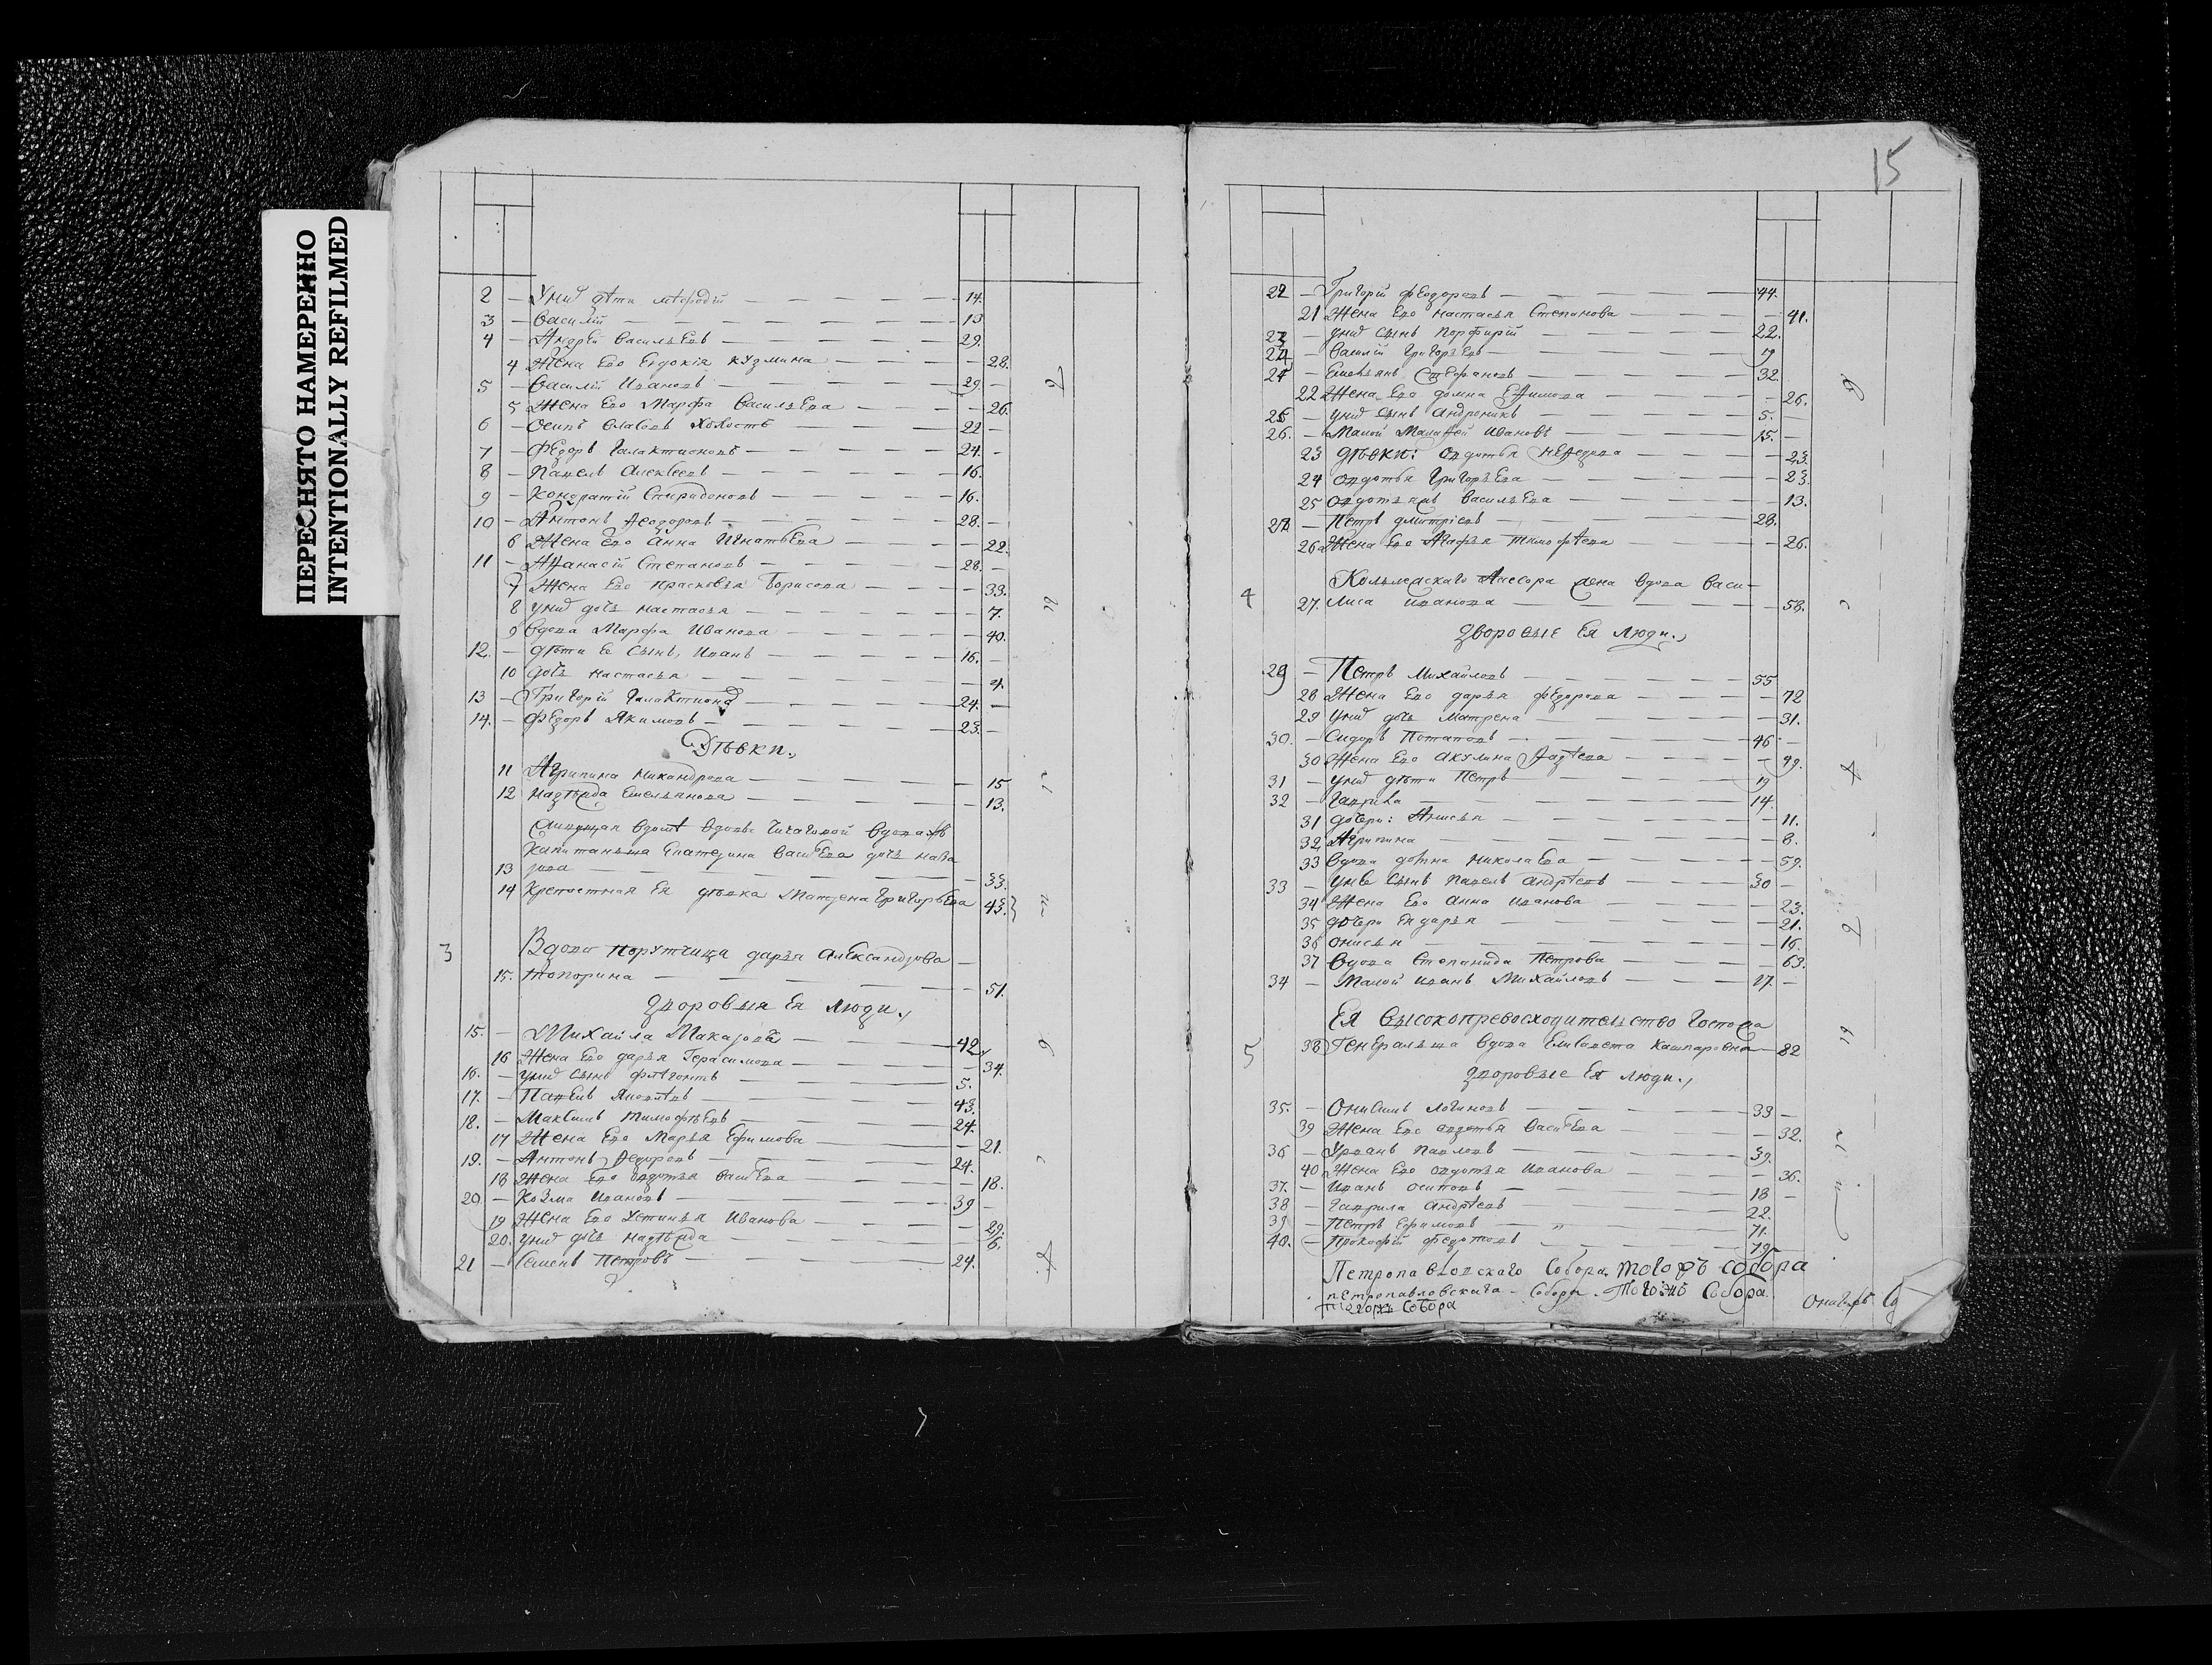 ПЕРЕСНЯТО НАМЕРЕННО
INTENTIONALLY REFILMED
2 — У них дѣти Меѳодій — 14.
3 — Василій — 13
4 — Андрей Васильевъ — 29.
4 Жена Ево Евдокія Кузмина — 28.
5 — Василій Ивановъ — 29. —
5 Жена Ево Марфа Васильева — 26.
6 — Осипъ холостъ — 22 —
7 — Федоръ Галактионовъ — 24. —
8 — Павелъ Алексѣевъ — 16.
9 — Кондратій Спиридоновъ — 16.
10 — Антонъ Ѳеодоровъ — 28. —
6 Жена Ево Анна Игнатьева — 22.
11 — Аѳанасій Степановъ — 28. —
7 Жена Ево Прасковья Борисова — 33.
8 У них дочь Настасья — 7.
9 Вдова Марфа Иванова — 40.
12. — Дѣти Ее Сынъ, Иванъ — 16. —
10 Дочь Настасья — 4.
13 — Григорій Галактионовъ — 24. —
14. — Федоръ Якимовъ — 23. —
Дѣвки.,
11 Агрипина Никандрова — 15
12 Надѣжда Емельянова — 13.
вдова
Капитаньша Екатерина Васильева дочь
13 — 33.
14 Крепостная Ея дѣвка Матрена Григорьева 43.
3 Вдова Порутчица Дарья Александрова —
15. Топорина — 51.
Дворовыя Ея Люди.,
15. — Михайла Макаровъ — 42.
16 Жена Ево Дарья Герасимова — 34.
16. — У них Сынъ Флегонтъ — 5.
17. — Павелъ Яковлевъ — 43.
18. — Максимъ Тимофѣевъ — 24.
17 Жена Ево Марья Ефимова — 21.
19. — Антонъ Ѳедоровъ — 24.
18 Жена Ево Овдотья Васильева — 18.
20. — Козма Ивановъ — 39 —
19 Жена Ево Устинья Иванова — 29.
20. У них дочь Надѣжда — 6.
21 — Семенъ Петровъ — 24.
15
22 — Григорій Федоровъ — 44.
21 Жена Ево Настасья Степанова — 41.
23 — У них Сынъ Порфирій — 22.
24 — Василій Григорьевъ — 19
24 — Емельянъ Стефановъ — 32.
22 Жена Ево Домна Ефимова — 26.
25 — У них Сынъ Андроникъ — 5.
26. — Малой Малафей Ивановъ — 15. —
23 Дѣвки: Овдотья Неѳедова — 23.
24 Овдотья Григорьева — 23.
25 Овдотья Васильева — 13.
27 — Петръ Дмитріевъ — 28.
26 Жена Ево Агафья Тимофѣева — 26.
4 Колѣжскаго Ассесора жена вдова Васи-
27. лиса Иванова — 58.
Дворовые Ея Люди.,
29 — Петръ Михайловъ — 55
28 Жена Ево Дарья Федорова — 72
29 У них дочь Матрена — 31.
30. — Сидоръ Потаповъ — 46 —
30 Жена Ево Акулина Фадѣева — 49.
31 — У них дѣти Петръ — 19
32 — Гаврила — 14.
31 Дочери: Анисья — 11.
32 Агрипина — 8.
33 Вдова Домна Николаева — 59.
33 — У нее Сынъ Павелъ Андрѣевъ — 30 —
34 Жена Ево Анна Иванова — 23.
35 Дочери Ея Дарья — 21.
36 Онисья — 16.
37 Вдова Степанида Петрова — 63.
34 — Малой Иванъ Михайловъ — 17. —
Ея Высокопревосходительство Госпожа
5 38 Генеральша Вдова Елисавета Кашпаровна — 82
Дворовые Ея Люди.,
35. — Онисимъ Логиновъ — 33 —
39 Жена Ево Овдотья Васильева — 32.
36 — Урванъ Павловъ — 39.
40 Жена Ево Овдотья Иванова — 36.
37. — Иванъ Осиповъ — 18 —
38 — Гаврила Андрѣевъ — 22.
39 — Петръ Ефимовъ — 71.
40. — Прокофій Федотовъ — 19
Петропавловскаго Собора. собора
петропавловскаго Собора. Собора.
Собора